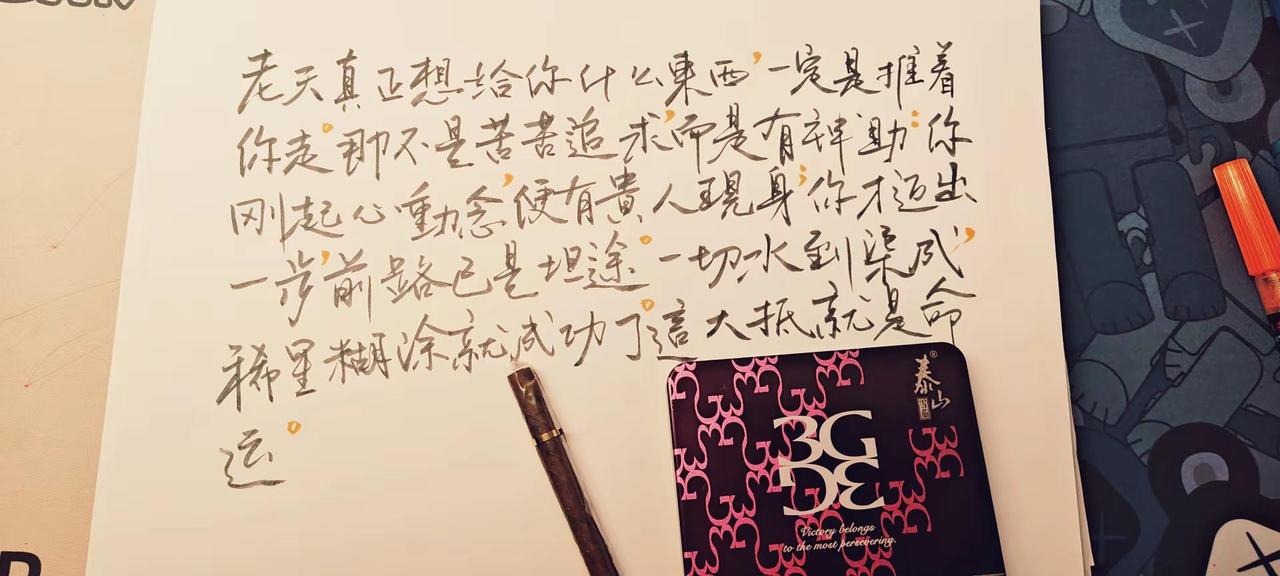 老天真正想给你什么東西，一定是推着
你走。那不是苦苦追求，而是有群助：你
刚起心動念，便有貴人現身；你才迈出
一步，前路已是坦途。一切水到渠成，
稀星糊涂就成功了。這大抵就是命
运。
泰山
®
3G
3G
Victory belongs
to the most persevering.